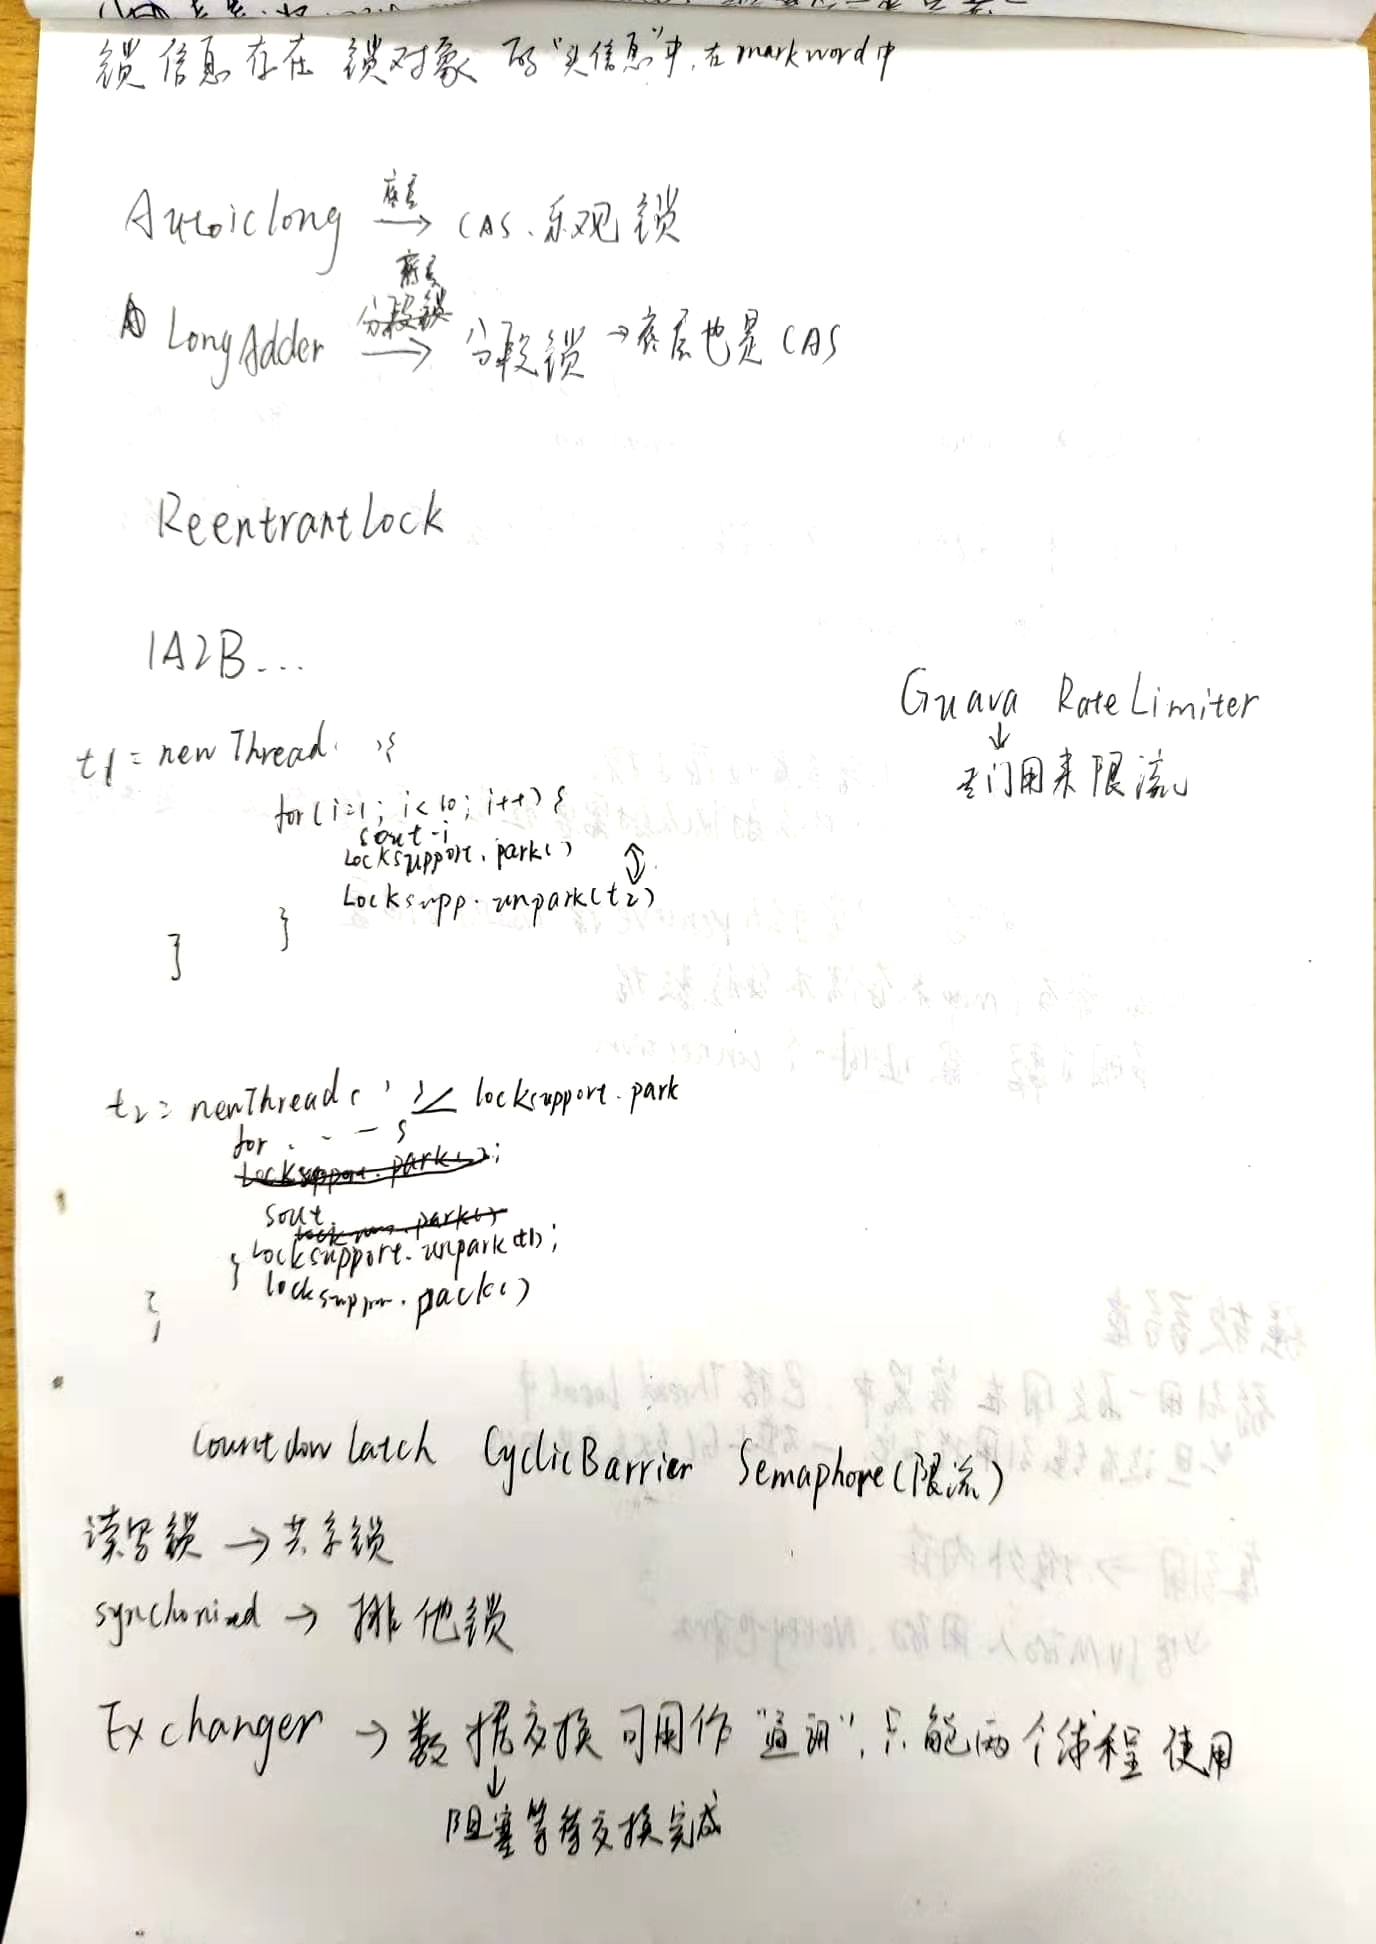 锁信息存在 锁对象 的“头信息”中,在markword中
Autoiclong 底层→ CAS、乐观锁
底层
LongAdder → 分段锁 →底层也是CAS
ReentrantLock
1A2B...
Guava RateLimiter
↓
专门用来限流
t1 = new Thread( ){
for(i=1; i<10; i++){
sout i
Locksupport.park()
Locksupp.unpark(t2)
}
}
t2 = newThread( ){ locksupport.park
for . . - {
sout
Locksupport.unpark(t1);
} locksuppor.park()
}
Countdow Latch CyclicBarrier Semaphore(限流)
读写锁 → 共享锁
synchonized → 排他锁
Exchanger → 数据交换 可用作“通讯”,只能两个线程使用
↓
阻塞等待交换完成